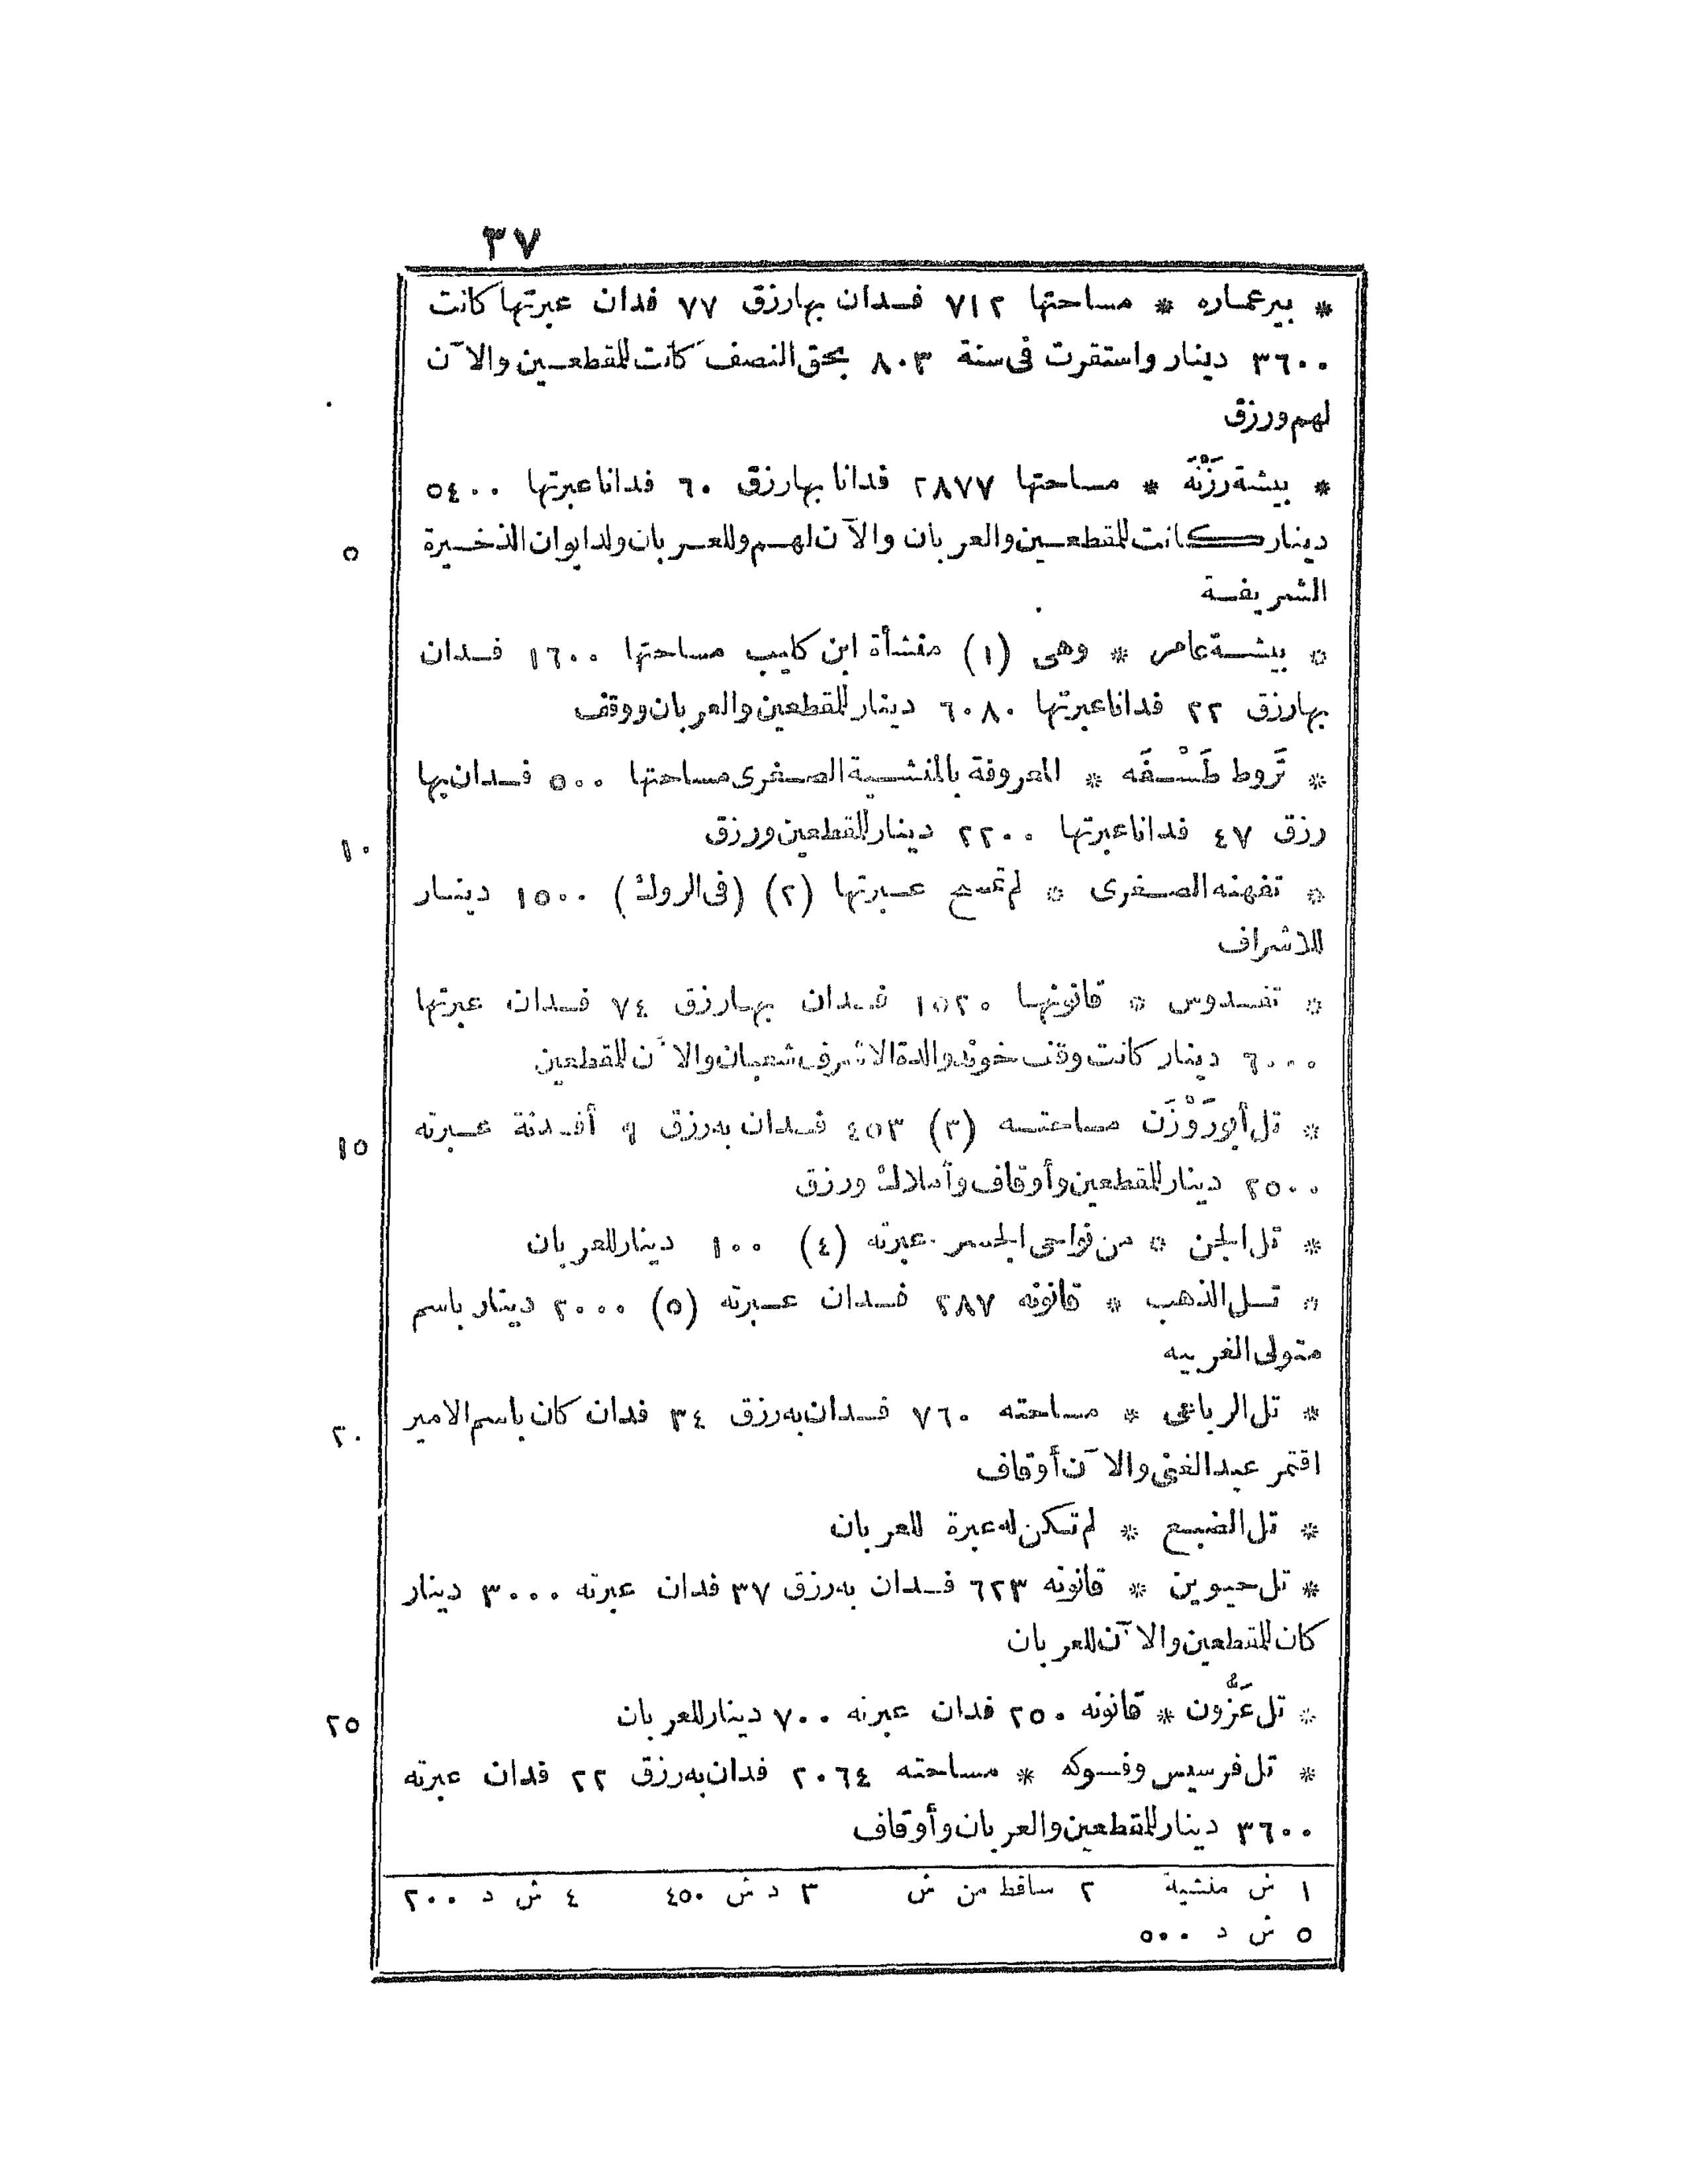 ٣٧
* بير عماره * مساحتها ٧١٢ فدان بها رزق ٧٧ فدان عبرتها كانت
٣٦٠٠ دينار واستقرت فى سنة ٨٠٣ بحق النصف كانت للمقطعين والآن
لهم ورزق
* بيشة رَزْنَه * مساحتها ٢٨٧٧ فدانا بها رزق ٦٠ فدانا عبرتها ٥٤٠٠
٥ دينار كانت للمقطعين والعربان والآن لهم وللعربان ولدايوان الذخيرة
الشريفة
* بيشة عامر * وهى (١) منشأة ابن كليب مساحتها ١٦٠٠ فدان
بها رزق ٢٢ فدانا عبرتها ٦٠٨٠ دينار للمقطعين والعربان ووقف
* تَروط طَسْفَه * المعروفة بالمنشية الصغرى مساحتها ٥٠٠ فدان بها
١٠ رزق ٤٧ فدانا عبرتها ٢٢٠٠ دينار للقطعين ورزق
* تفهنه الصغرى * لم تمسح عبرتها (٢) (فى الروك) ١٥٠٠ دينار
للاشراف
* تفدوس * قانونها ١٥٢٠ فدان بها رزق ٧٤ فدان عبرتها
٦٠٠٠ دينار كانت وقف خوند والدة الاشرف شعبان والآن للمقطعين
١٥ * تل أبورَوْزَن مساحته (٣) ٤٥٣ فدان به رزق ٩ أفدنة عبرته
٢٥٠٠ دينار للمقطعين وأوقاف وأملاك ورزق
* تل الجن * من نواحى الجسر عبرته (٤) ١٠٠ دينار للعربان
* تل الذهب * قانونه ٢٨٧ فدان عبرته (٥) ٢٠٠٠ دينار باسم
متولى الغربيه
٢٠ * تل الرباعى * مساحته ٧٦٠ فدان به رزق ٣٤ فدان كان باسم الامير
اقتمر عبد الغنى والآن أوقاف
* تل الضبع * لم تكن له عبرة للعربان
* تل حيوين * قانونه ٦٢٣ فدان به رزق ٣٧ فدان عبرته ٣٠٠٠ دينار
كان للمقطعين والآن للعربان
٢٥ * تل عَزُّون * قانونه ٢٥٠ فدان عبرته ٧٠٠ دينار للعربان
* تل فرسيس وفسوكه * مساحته ٢٠٦٤ فدان به رزق ٢٢ فدان عبرته
٣٦٠٠ دينار للمقطعين والعربان وأوقاف
١ ش منشية ٢ ساقط من ش ٣ د ش ٤٥٠ ٤ ش د ٢٠٠
٥ ش د ٥٠٠